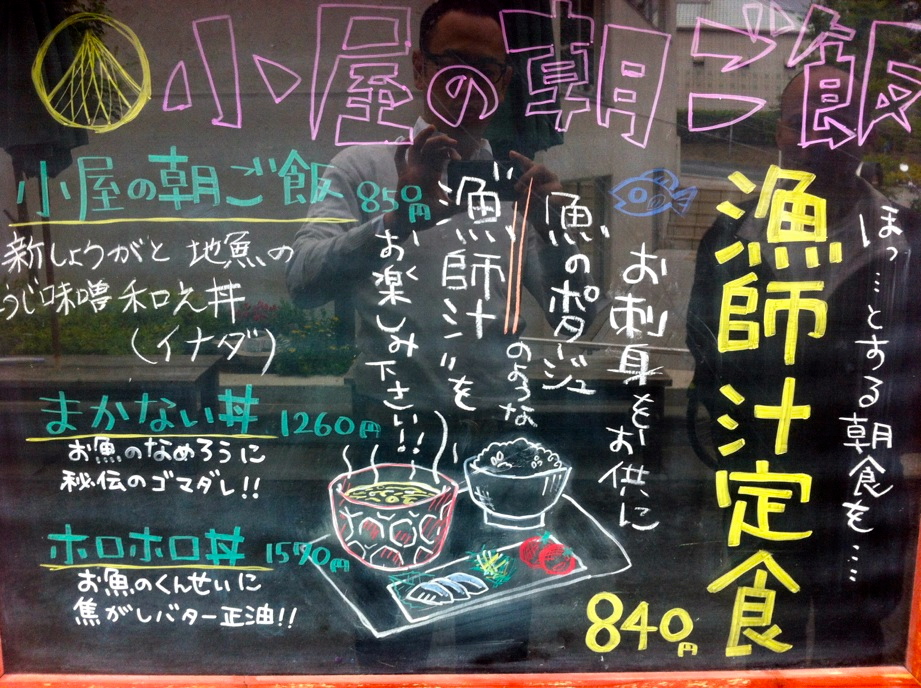 小屋の朝ご飯
ほっ…とする朝食を…
漁師汁定食
840円
お刺身をお供に
魚のポタージュ
のような
"漁師汁"を
お楽しみ下さい!!
小屋の朝ご飯 850円
新しょうがと地魚の
うじ味噌和え丼
(イナダ)
まかない丼 1260円
お魚のなめろうに
秘伝のゴマダレ!!
ホロホロ丼 1570円
お魚のくんせいに
焦がしバター正油!!